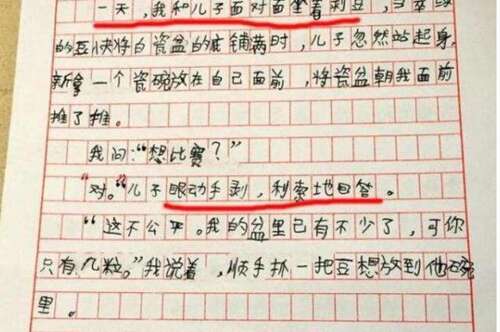 一天，我和儿子面对面坐着剥豆，当翠绿
的豆快将白瓷盆的底铺满时，儿子忽然站起身，
新拿一个瓷碗放在自己面前，将瓷盆朝我面前
推了推。
我问：“想比赛？”
“对。”儿子眼动手剥，利索地回答。
“这不公平。我的盆里已有不少了，可你
只有几粒。”我说着，顺手抓一把豆想放到他碗
里。